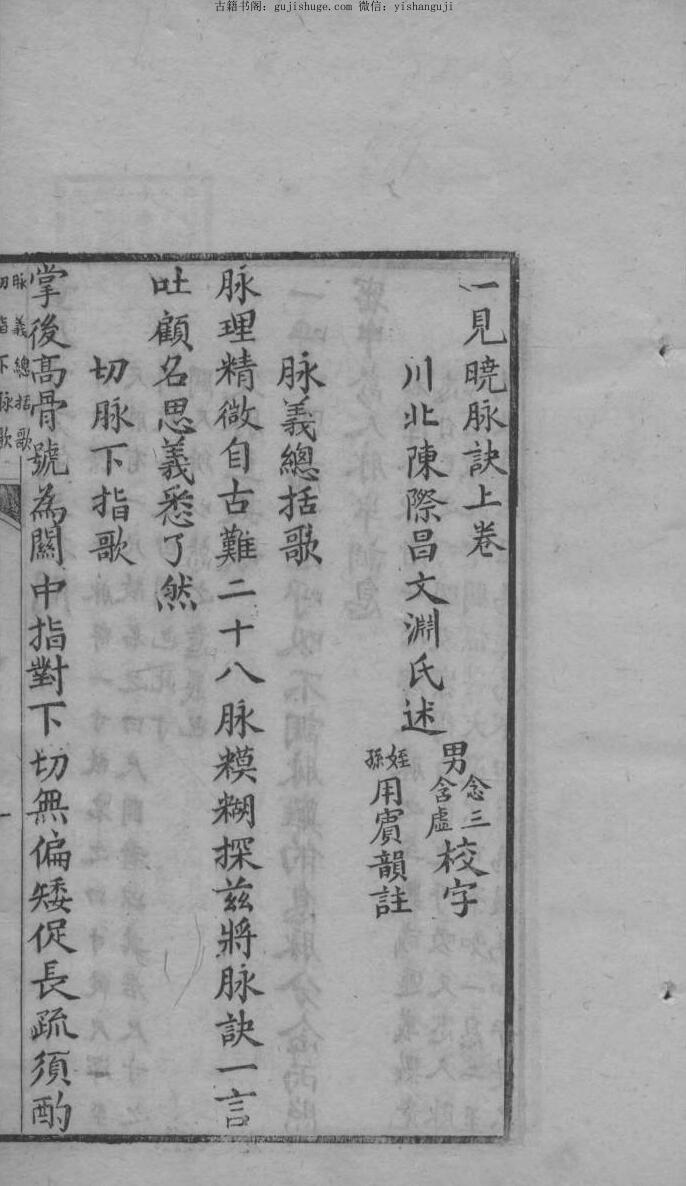 古籍书阁：gujishuge.com 微信：yishanguji
一見曉脉訣上卷
川北陳際昌文淵氏述
男念三含虛校字
姪孫用賓韻註
脉義總括歌
脉理精微自古難二十八脉糢糊探茲將脉訣一言
吐顧名思義悉了然
切脉下指歌
掌後高骨號為關中指對下切無偏矮促長疏須酌
脉義總括歌
切指下脉歌
一